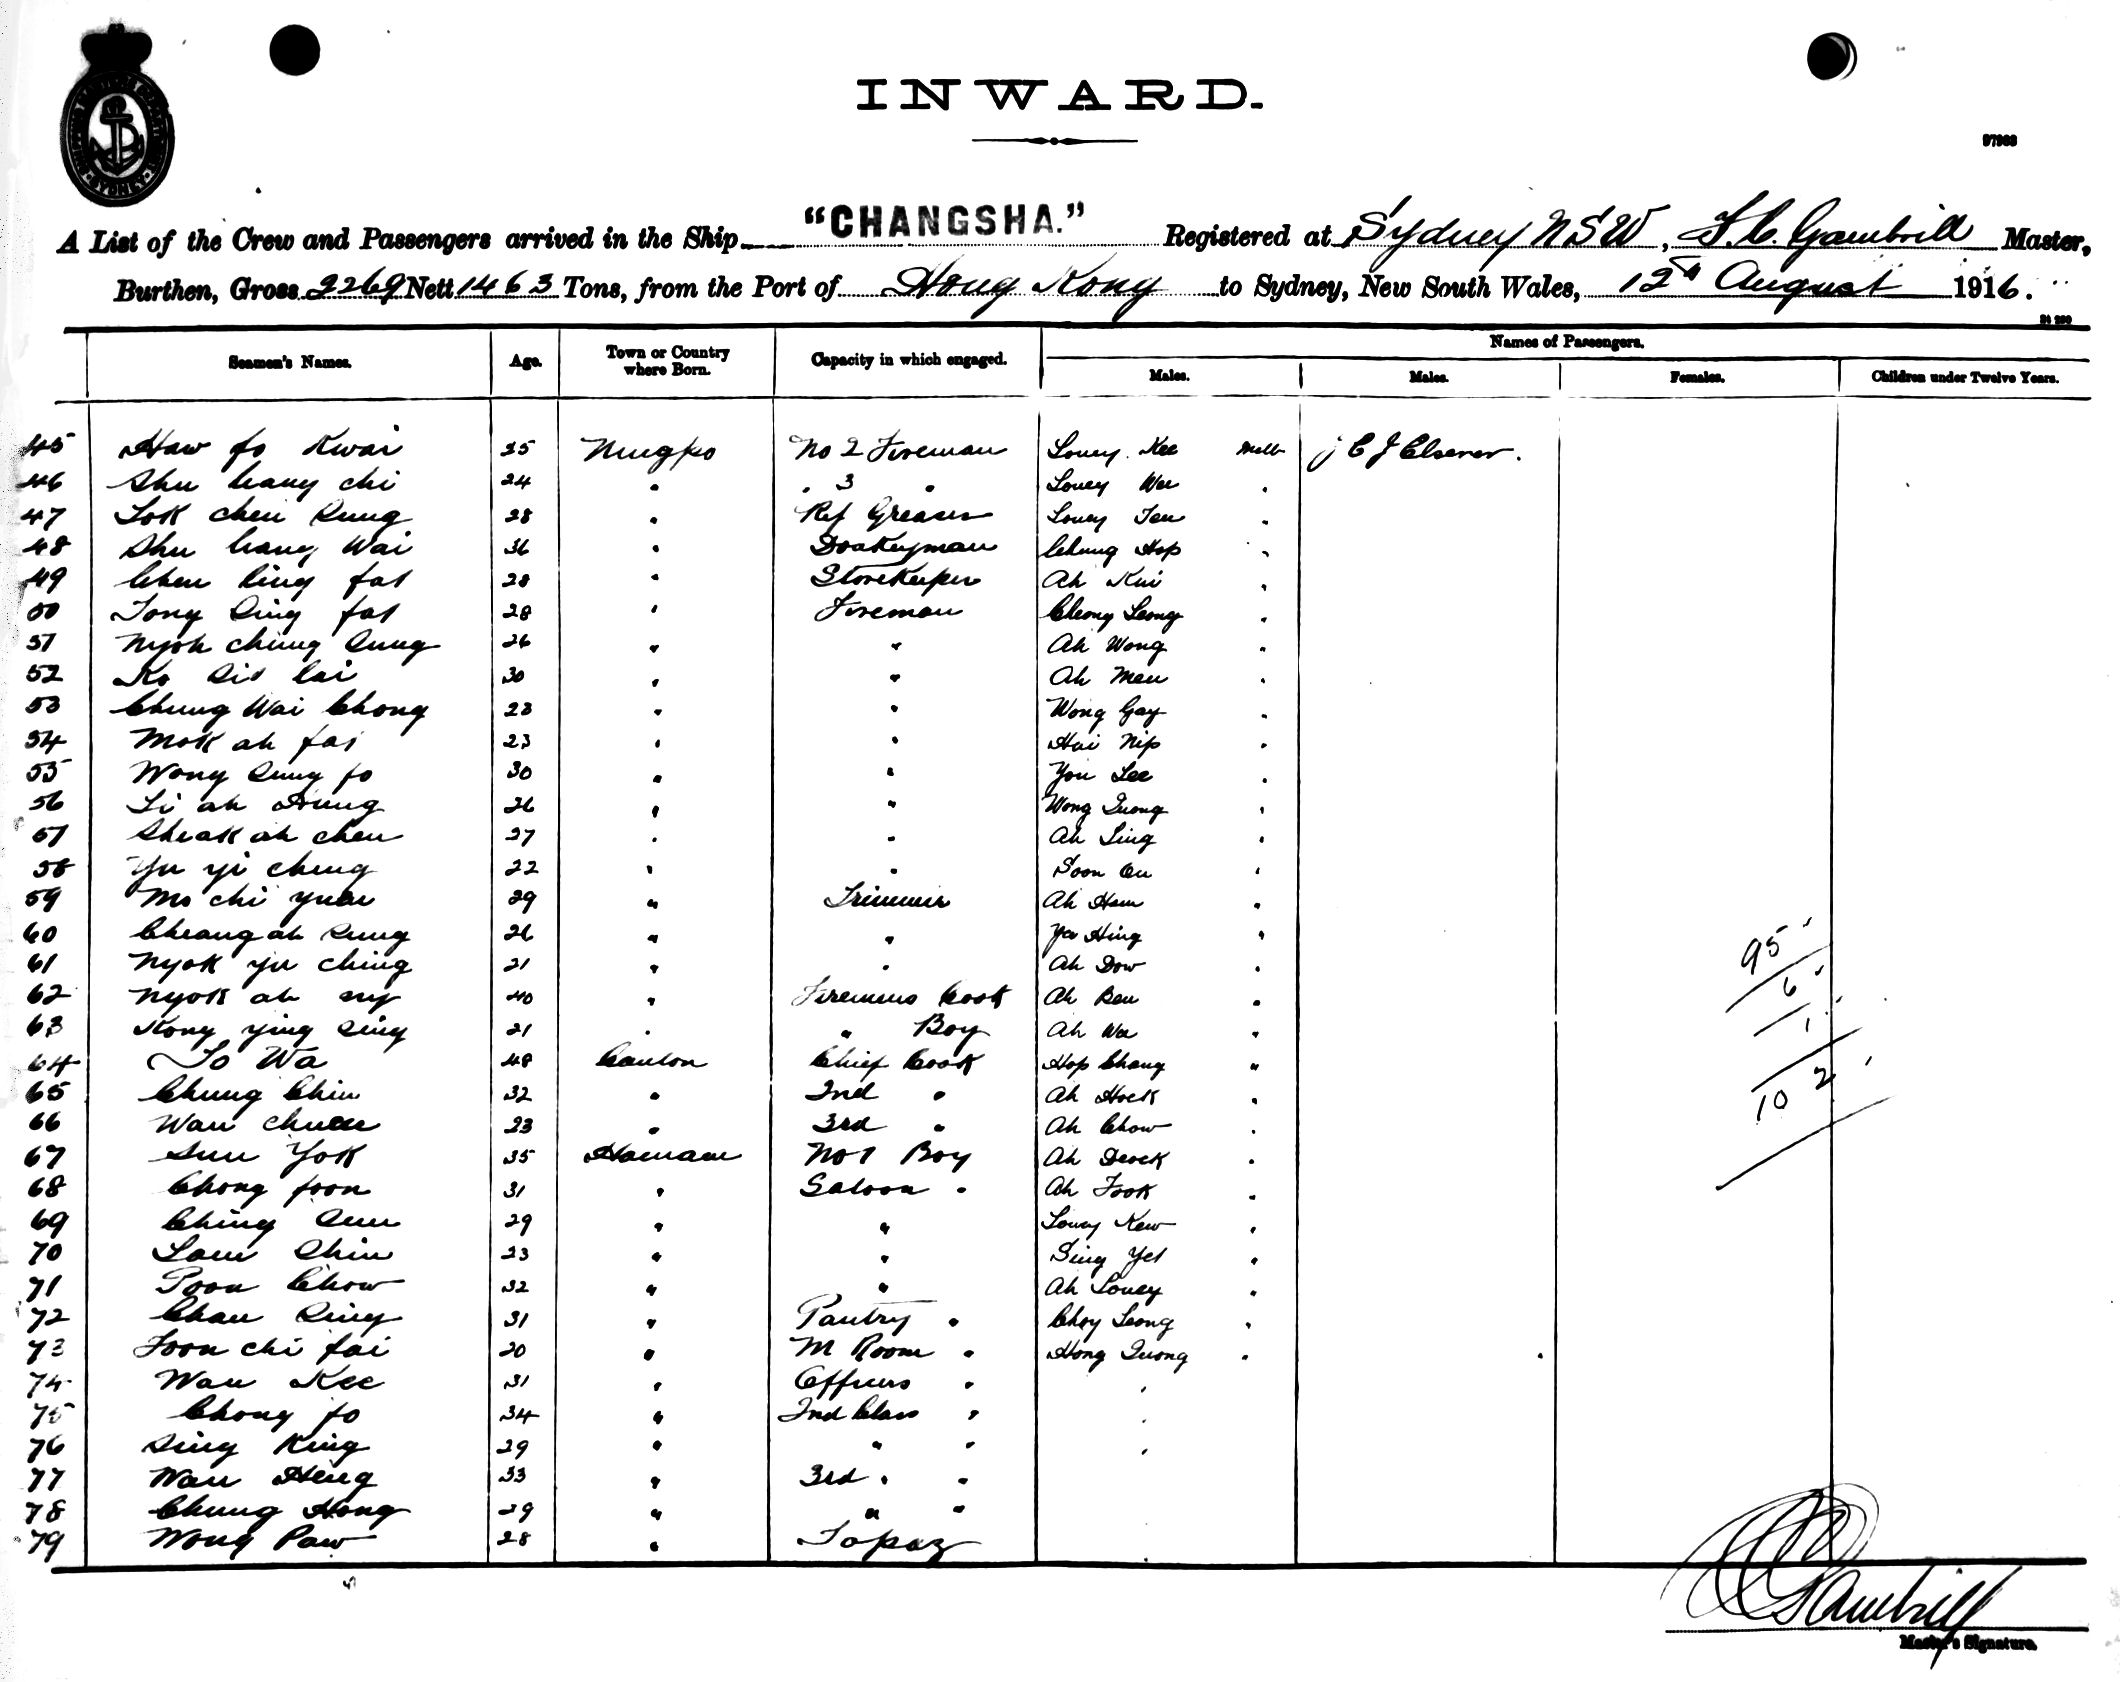 INWARD.
97963
A List of the Crew and Passengers arrived in the Ship "CHANGSHA." Registered at Sydney NSW, Gambrill Master,
Burthen, Gross 2269 Nett 1463 Tons, from the Port of Hong Kong to Sydney, New South Wales, 12th August 1916.
Seamen's Names. Age. Town or Country where Born. Capacity in which engaged. Names of Passengers.
Males. Males. Females. Children under Twelve Years.
45 Haw fo Kwai 25 Ningpo No 2 Fireman Louey Kee Melb C J Elsener.
46 Shu hang chi 24 " " 3 " Louey Wa "
47 Lok chen Sung 28 " Ref Greaser Louey Ten "
48 Shu hang Wai 36 " Donkeyman Chung Hop "
49 Chen ling fat 28 " Storekeeper Ah Kui "
50 Tong Sing fat 28 " Fireman Cheong Leong "
51 Nyok ching Sung 26 " " Ah Wong "
52 Ko Sis lai 30 " " Ah Men "
53 Chung Wai Chong 23 " " Wong Gay "
54 Mok ah fai 23 " " Hui Nip "
55 Wong Sung fo 30 " " You Lee "
56 Li ah Doung 26 " " Wong Quong "
57 Sheak ah chen 27 " " Ah Ling "
58 Yu yi cheng 22 " " Soon On "
59 Mo chi yuen 29 " Trimmer Ah Ham "
60 Cheang ah Sung 26 " " Ya Hing "
61 Nyok yu ching 21 " " Ah Dow "
62 Nyok ah ny 40 " Firemens Cook Ah Ben "
63 Kong ying Sing 21 " " Boy Ah Wa "
64 To Wa 48 Canton Chief Cook Hop Chang "
65 Chung Chin 32 " 2nd " Ah Hock "
66 Wan chuen 23 " 3rd " Ah Chow "
67 Sun Yok 35 Hainam No 1 Boy Ah Deock "
68 Chong foon 31 " Saloon " Ah Fook "
69 Ching Sun 29 " " Louey Kew "
70 Lam Shin 23 " " Sing Yet "
71 Poon Chow 32 " " Ah Louey "
72 Chan Sing 31 " Pantry " Choy Leong "
73 Foon chi fai 20 " M Room " Hong Quong "
74 Wan Kee 31 " Officers "
75 Chong fo 34 " 2nd Class "
76 Sing King 29 " " "
77 Wan Heng 33 " 3rd " "
78 Chung Hong 29 " " "
79 Wong Paw 28 " Topaz
95
6
1
102
Gambrill
Master's Signature.